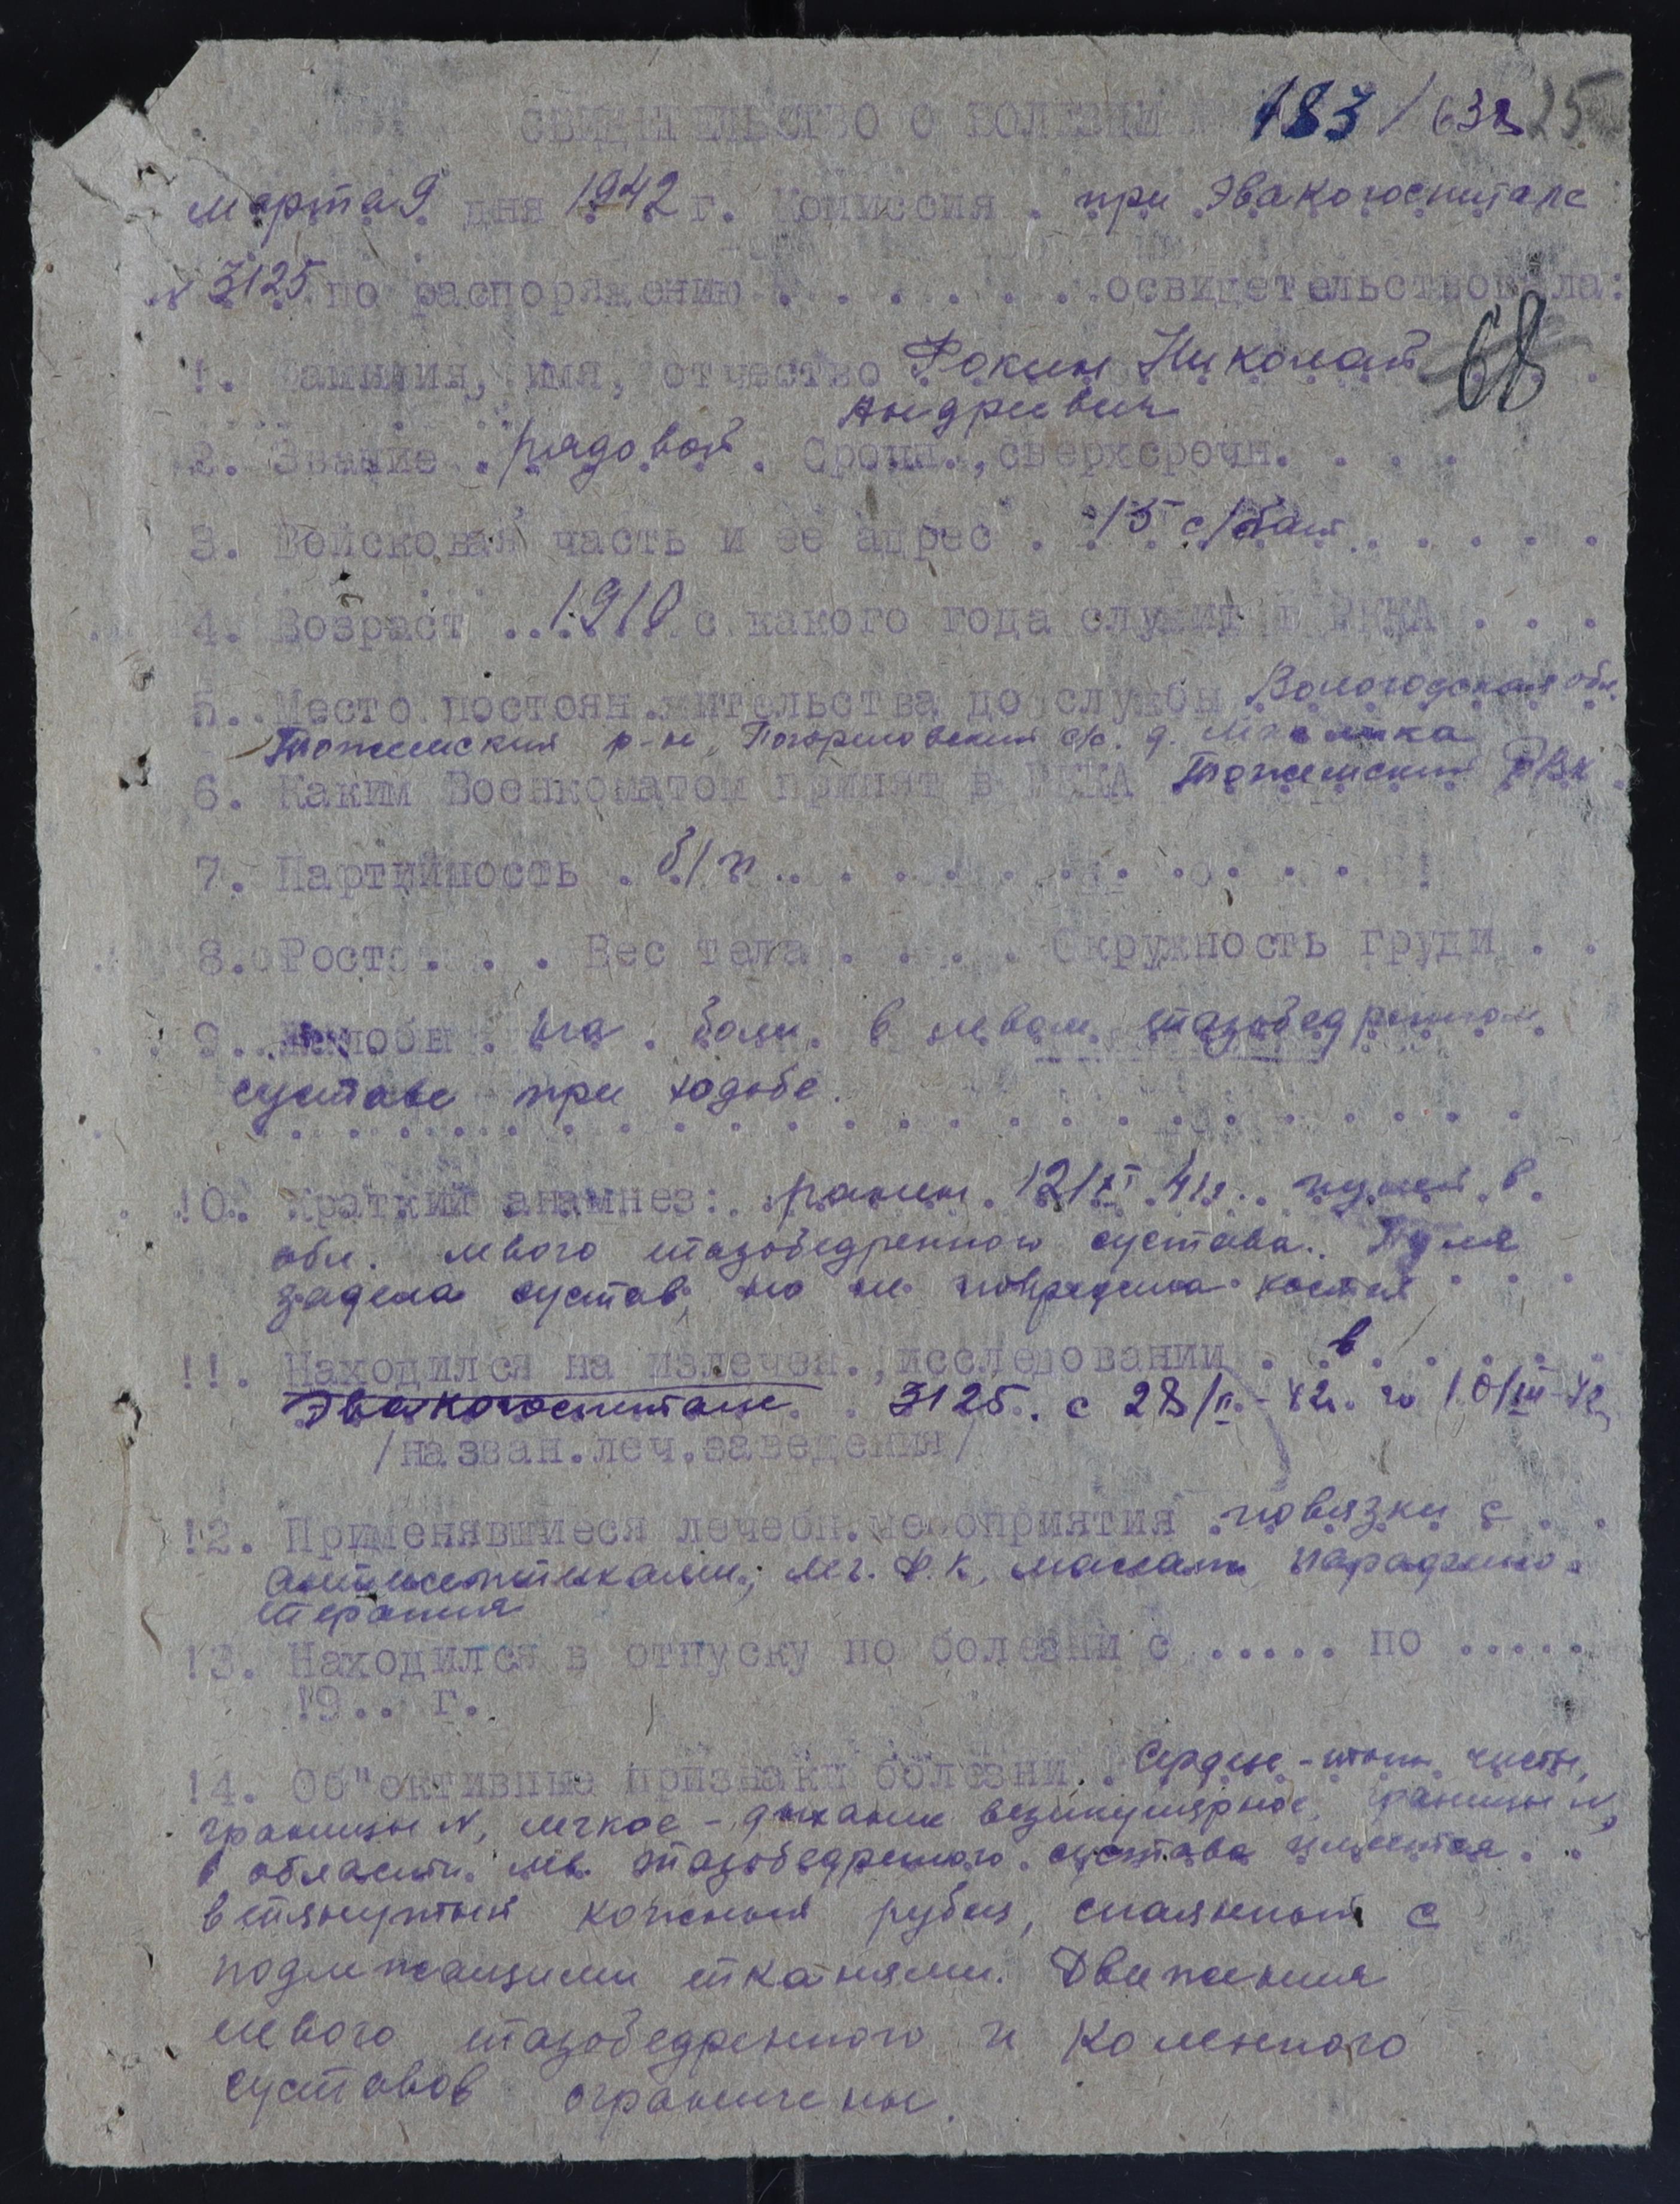 СВИДЕТЕЛЬСТВО О БОЛЕЗНИ 183/638 25
марта 9 дня 1942 г. Комиссия . при Эвакогоспитале
№ 3125 по распоряжению . . . . . . освидетельствовала:
1. Фамилия, имя, отчество Фокин Николай 68
Андриевич
2. Звание . рядовой . Срочн., сверхсрочн. . . . .
3. Войсковая часть и ее адрес . 15 с/бат . . . . .
4. Возраст .. 1910 с какого года служит в РККА . . .
5. Место постоян. жительства до службы Вологодская обл.
р-н, с/с. д.
6. Каким Военкоматом принят в РККА РВК
7. Партийность . б/п . . . . . . . . . .
8. Рост . . . Вес тела . . . . Окружность груди . .
9. Жалобы . на . боли . в левом тазобедренном
суставе при ходьбе.
10. Краткий анамнез: . ранен . 12/XI 41г. . пулей . в .
обл. левого тазобедренного сустава. Пуля
задела сустав, но не повредила костей . . .
11. Находился на излечен., исследовании . . в . . . . .
Эвакогоспитале . . 3125 . с 28/II - 42г. по 10/III-42
/назван.леч.заведения/
12. Применявшиеся лечебн.мероприятия . повязки с . .
антисептиками; Л.Ф.К, массаж парафино-
терапия
13. Находился в отпуску по болезни с ..... по .....
19.. г.
14. Об"ективные признаки болезни . Сердце - тоны чисты,
границы N, легкое - дыхание везикулярное, границы N,
в области лев. тазобедренного сустава имеется . .
втянутый кожный рубец, спаянный с
подлежащими тканями. Движения
левого тазобедренного и коленного
суставов ограничены.